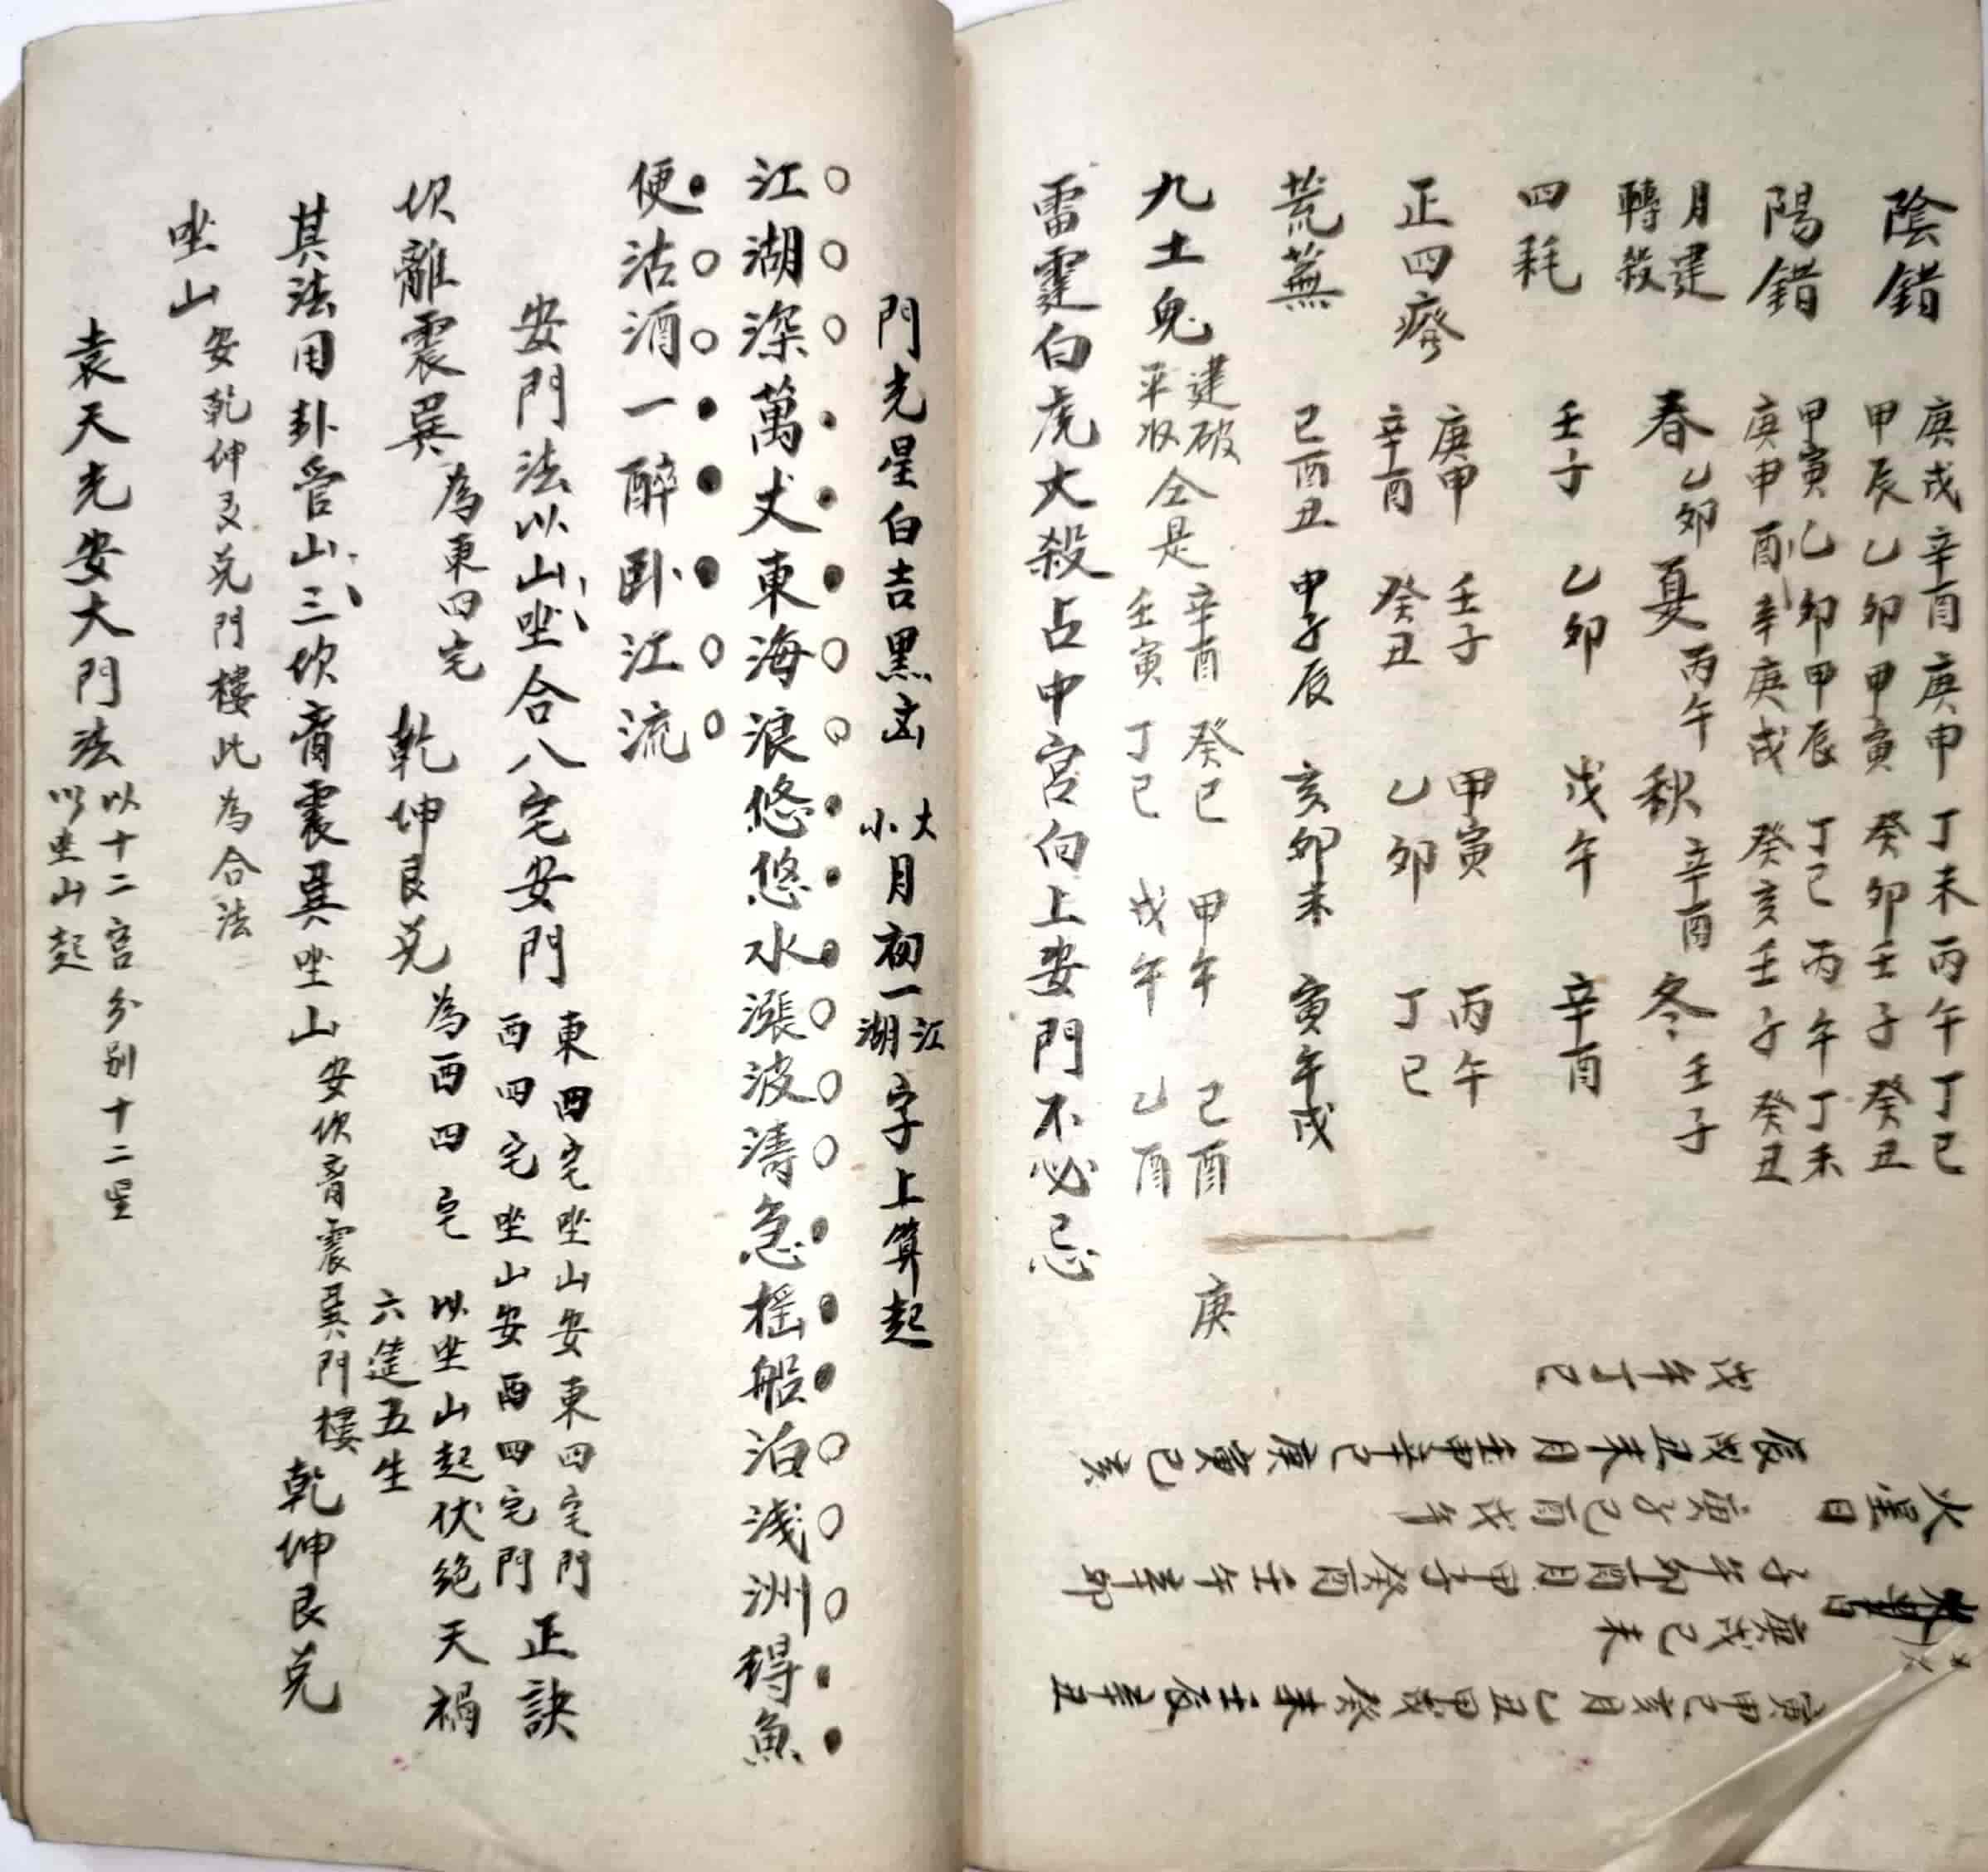 陰錯 庚戌辛酉庚申丁未丙午丁巳
甲辰乙卯甲寅癸卯壬子癸丑
陽錯 甲寅乙卯甲辰丁巳丙午丁未
庚申酉辛庚戌癸亥壬子癸丑
月建
轉殺 春乙卯 夏丙午 秋辛酉 冬壬子
四耗 壬子 乙卯 戊午 辛酉
正四癈 庚申 壬子 甲寅 丙午
辛酉 癸丑 乙卯 丁巳
荒蕪 巳酉丑 申子辰 亥卯未 寅午戌
九土鬼 建破 平收 仝是 辛酉 癸巳 甲午 己酉 庚
壬寅 丁巳 戊午 乙酉
雷霆白虎大殺占中宮向上安門不必忌
戊午丁巳
辰戌丑未月壬申辛巳庚寅己亥
火星日 庚子己酉戊午
子午卯酉月甲子癸酉壬午辛卯
庚戌己未
寅申巳亥月乙丑甲戌癸未壬辰辛丑
門光星白吉黑凶 大小月初一江湖字上算起
江湖深萬丈東海浪悠悠水漲波濤急搖船泊淺洲得魚
便沽酒一醉卧江流
安門法以山坐合八宅安門 東四宅坐山安東四宅門
西四宅坐山安西四宅門 正訣
坎離震巽為東四宅 乾坤艮兑為西四宅 以坐山起伏絶天禍
六延五生
其法用卦管山三坎离震巽坐山安坎离震巽門樓 乾坤艮兑
坐山安乾坤艮兑門樓此為合法
袁天光安大門法 以十二宮分别十二星
以坐山起